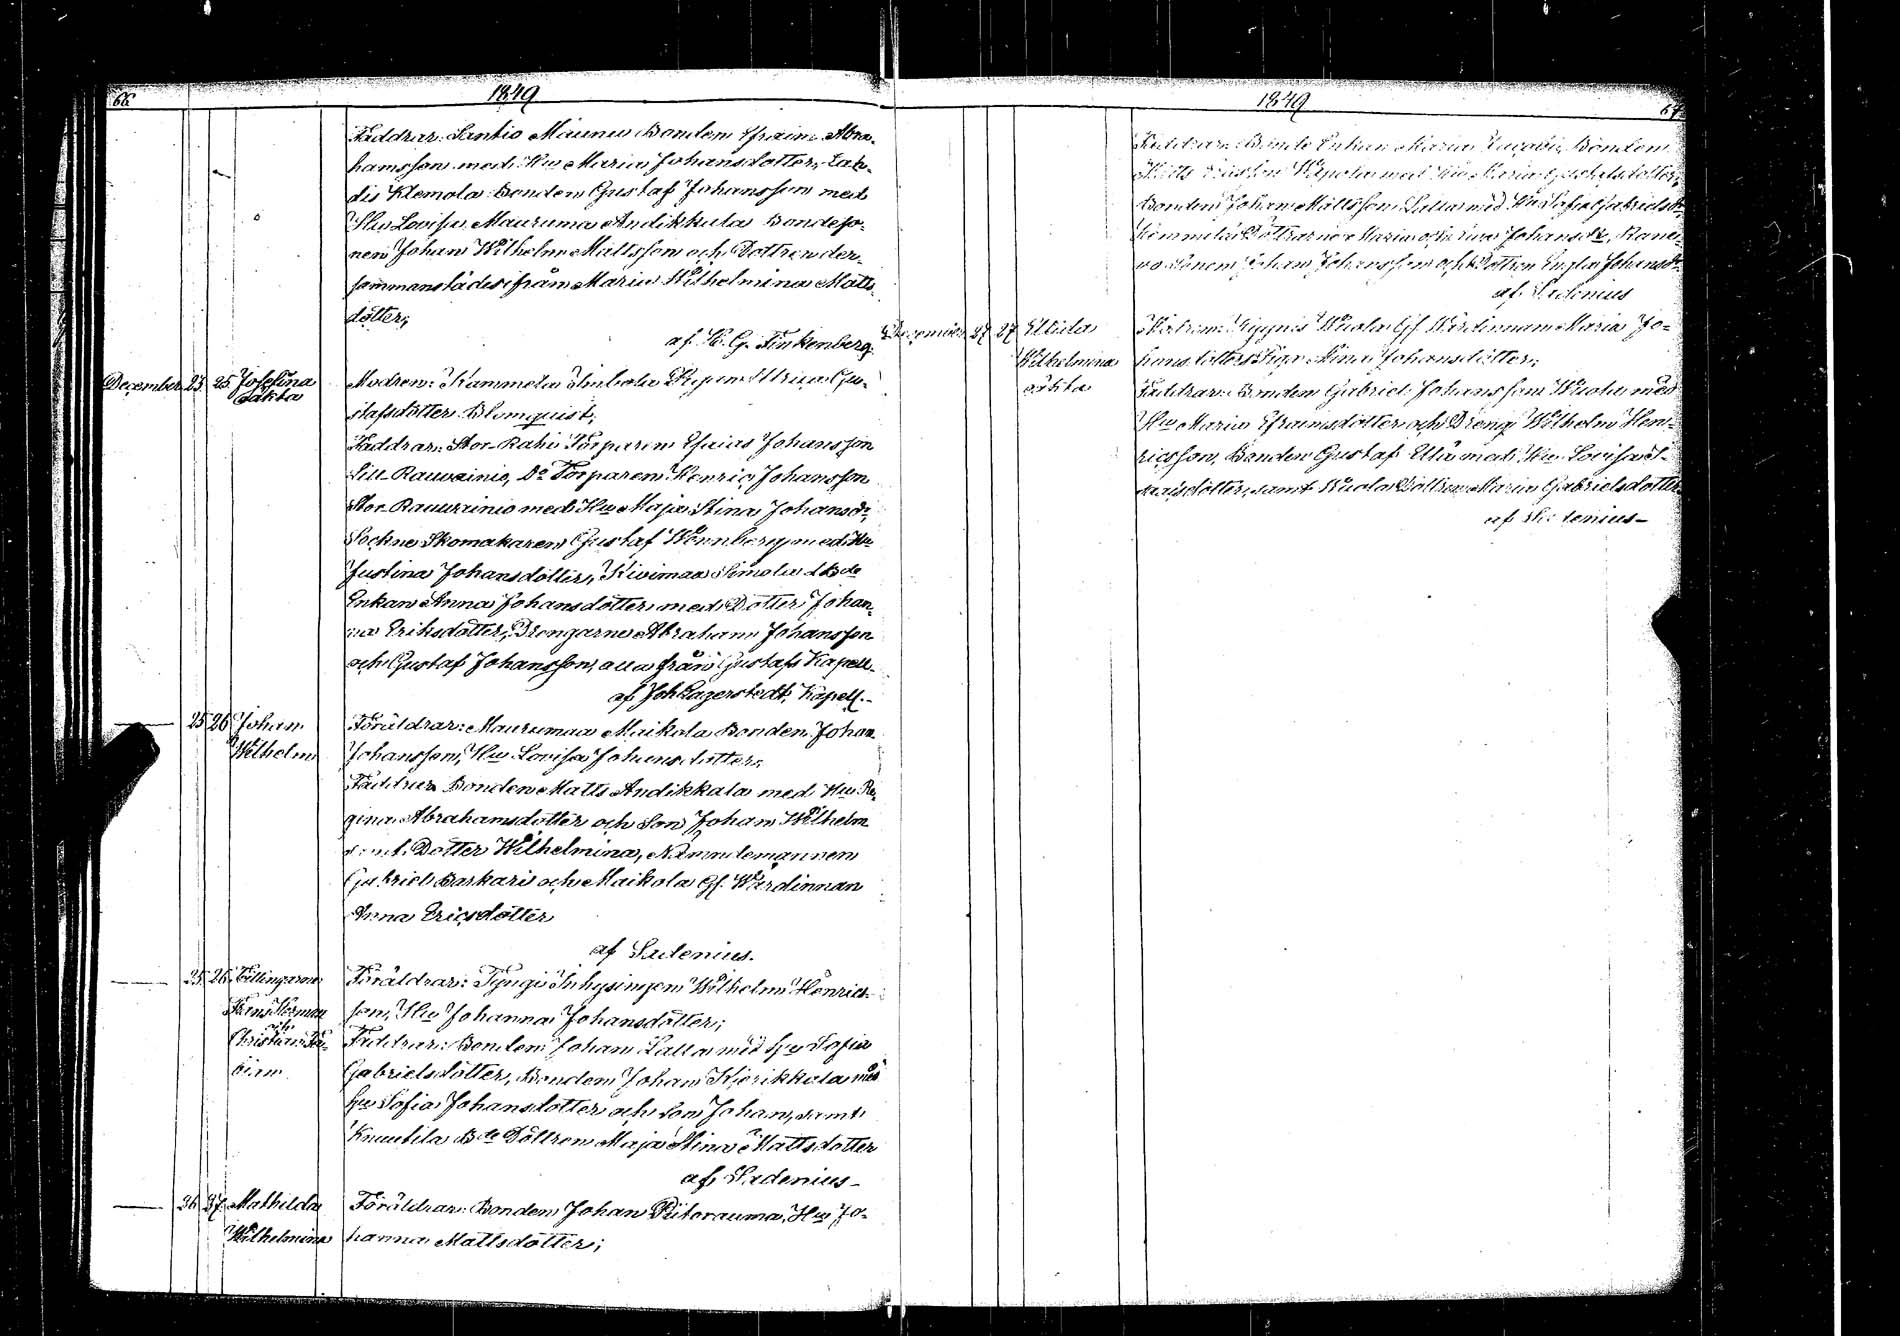 66
1849
Faddrar: Santio Maunu Bonden Efraim Abra-
hamsson med Hu Maria Johansdotter, Lak-
dis Klemola Bonden Gustaf Johansson med
Hu Lovisa, Mauruma Andikkula Bondeso-
nen Johan Wilhelm Mattsson och Dottren der-
sammanstädes ifrån Maria Wilhelmina Matts-
dotter;
af K. G. Finkenberg.
December 23 25 Josefina
Modren: Kammela Pigan Ulrica Gu-
stafsdotter Blomquist;
Faddrar: Stor-Rahi Torparen Esaias Johansson
Lill-Rauvainio, Do Torparen Henric Johansson
Stor-Rauvainio med Hu Maja Stina Johansdr,
Sockne Skomakaren Gustaf Wennberg med Hu
Justina Johansdotter, Kivimaa Simola Bde
Enkan Anna Johansdotter med Dotter Johan-
na Eriksdotter, Drengarne Abraham Johansson
och Gustaf Johansson, alla från Gustafs Kapell.
af Joh Lagerstedt, Kapell.-
25 26 Johan
Wilhelm
Föräldrar: Maurumaa Maikola Bonden Johan
Johansson, Hu Lovisa Johansdotter;
Faddrar Bonden Matts Andikkala med Hu Re-
gina Abrahamsdotter och Son Johan Wilhelm
samt Dotter Wilhelmina, Nämndemannen
Gabriel Barkari och Maikola Gf. Wärdinnan
Anna Ericsdotter
af Sadenius.
25 26 Tvillingarne
Frans Herman
och
Christian
Föräldrar: Tyngi Inhysingen Wilhelm Henrics-
son, Hu Johanna Johansdotter;
Faddrar: Bonden Johan Lalla med Hu Sofia
Gabrielsdotter, Bonden Johan Kjerikkala med
Hu Sofia Johansdotter och Son Johan, samt
Knuutila Bde Dottren Maja Stina Mattsdotter
af Sadenius-
26 27 Mathilda
Wilhelmina
Föräldrar: Bonden Johan Piitorauma, Hu Jo-
hanna Mattsdotter;
1849
67
Faddrar: Bonde Enkan Maria Jacobi, Bonden
Matts med Hu Maria
Bonden Johan Mattsson Lalla med Hu Sofia Gabrielsdr
Döttrarne Maria och Johansdr,
Sonen Johan Johansson och Dottren Engla Johansdr
af Sadenius
December 27 27
Wilhelmina
Modren: Wuola Gf Wärdinnan Maria Jo-
hansdotters Piga Stina Johansdotter;
Faddrar: Bonden Gabriel Johansson Wuola med
Hu Maria Efraimsdotter och Dreng Wilhelm Hen-
ricsson, Bonden Gustaf Ella med Hu Lovisa I-
saksdotter, samt Wuola Dottren Maria Gabrielsdotter
af Sadenius-